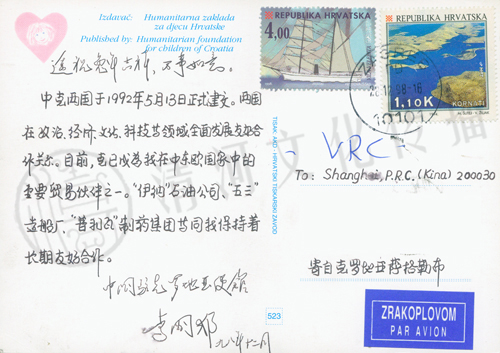 Izdavač: Humanitarna zaklada
za djecu Hrvatske
Published by: Humanitarian foundation
for children of Croatia
REPUBLIKA HRVATSKA
4,00
REPUBLIKA HRVATSKA
1,10K
KORNATI
10101
万事如意。
中克两国于1992年5月13日正式建交。两国
在政治、经济、文化、科技等领域全面发展友好合
作关系。目前,克已成为我在中东欧国家中的
重要贸易伙伴之一。"伊纳"石油公司、"五三"
造船厂、"普利瓦"制药集团等同我保持着
长期友好合作。
中国驻克罗地亚使馆
九八年十二月
TISAK: AKD - HRVATSKI TISKARSKI ZAVOD
523
- VRC -
To: Shanghai, P.R.C. (Kina) 200030
寄自克罗地亚萨格勒布
ZRAKOPLOVOM
PAR AVION